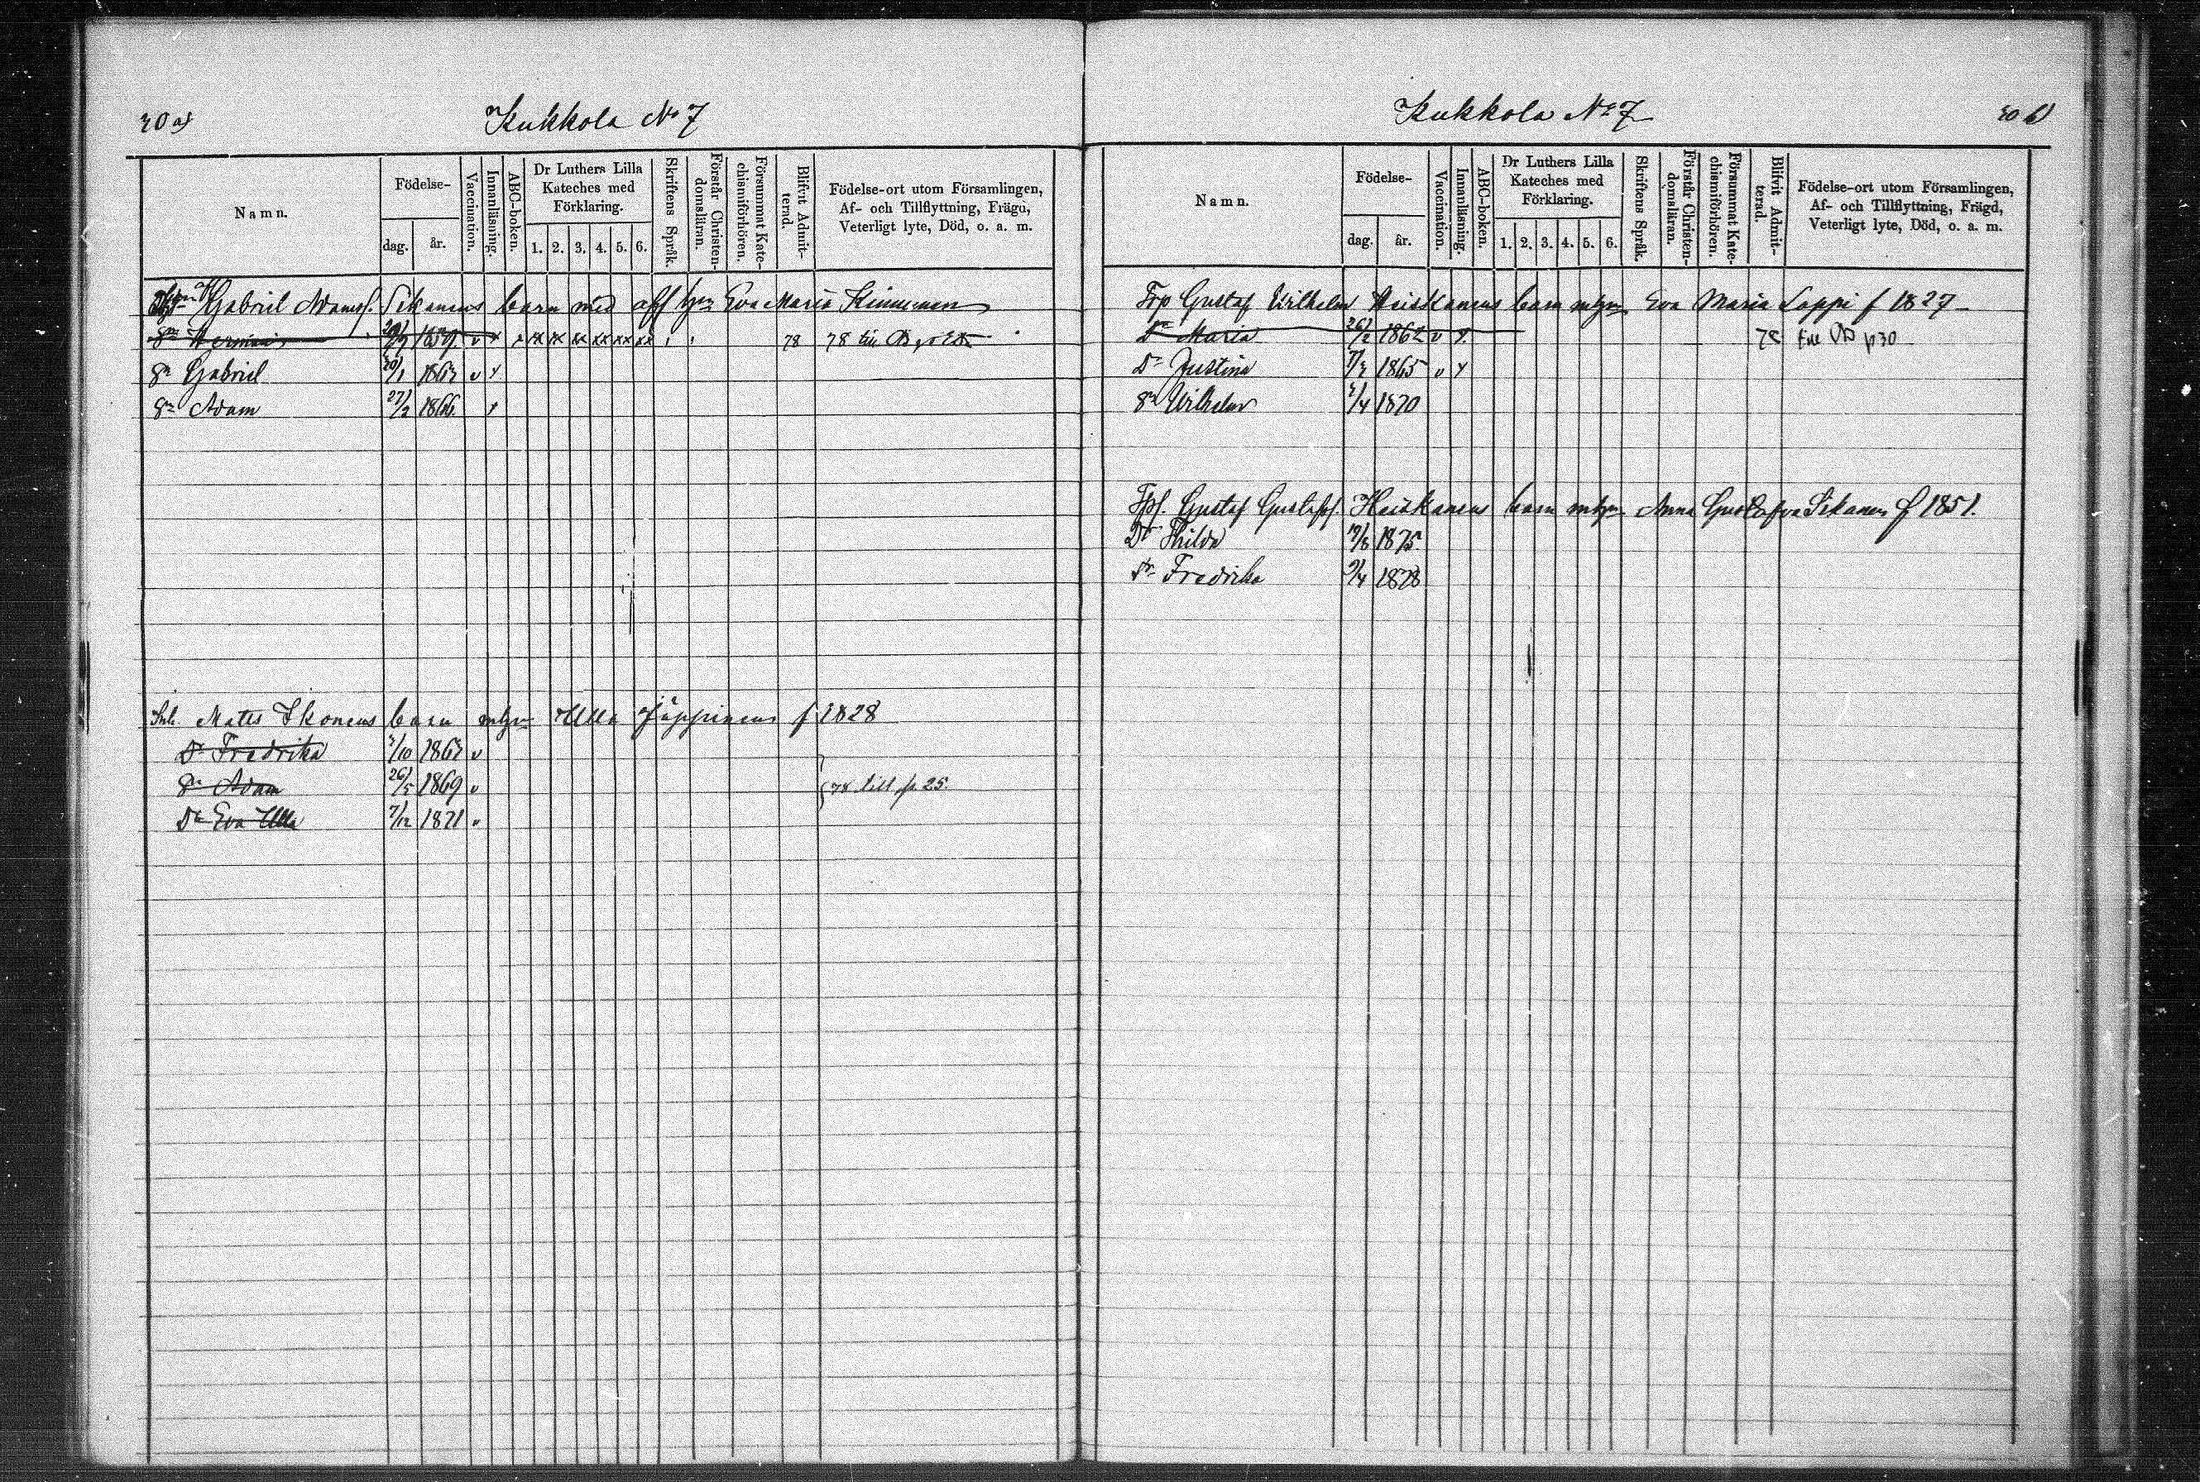 30 a)
Kukkola No 7
Namn.
Födelse-
dag.
år.
Vaccination.
Innanläsning.
ABC-boken.
Dr Luthers Lilla
Kateches med
Förklaring.
1. 2. 3. 4. 5. 6.
Skriftens Språk.
Förstår Christen-
domsläran.
Försummat Kate-
chismiförhören.
Blifvit Admit-
terad.
Födelse-ort utom Församlingen,
Af- och Tillflyttning, Frägd,
Veterligt lyte, Död, o. a. m.
Gabriel Adamss. Sikanens barn med afl hu Eva Maria Kinnunen
Sn Herman 1859 v x x xx xx xx xx xx xx 78 78
Sn Gabriel 20/1 1863 v x
Sn Adam 27/2 1866 x
Inh. Mats Ikonens barn mhu Ulla Jäppinens f 1828
Dr Fredrika 7/10 1863 v
Sn Adam 26/5 1869 v 78 till p. 25.
Dr Eva Ulla 7/12 1871 v
Kukkola No 7
30 b)
Namn.
Födelse-
dag.
år.
Vaccination.
Innanläsning.
ABC-boken.
Dr Luthers Lilla
Kateches med
Förklaring.
1. 2. 3. 4. 5. 6.
Skriftens Språk.
Förstår Christen-
domsläran.
Försummat Kate-
chismiförhören.
Blifvit Admit-
terad.
Födelse-ort utom Församlingen,
Af- och Tillflyttning, Frägd,
Veterligt lyte, Död, o. a. m.
Trp Gustaf Wilhelm Heiskanens barn mhu Eva Maria Lappi f 1827
Dr Maria 26/2 1862 v x 78 p 30
Dr Justina 1865 v x
Sn Wilhelm 2/4 1870
Gustaf Gustafss. Heiskanens barn mhu Anna Gustafva Sikanen f 1851.
Dr Hilda 1875
Dr Fredrika 9/4 1878